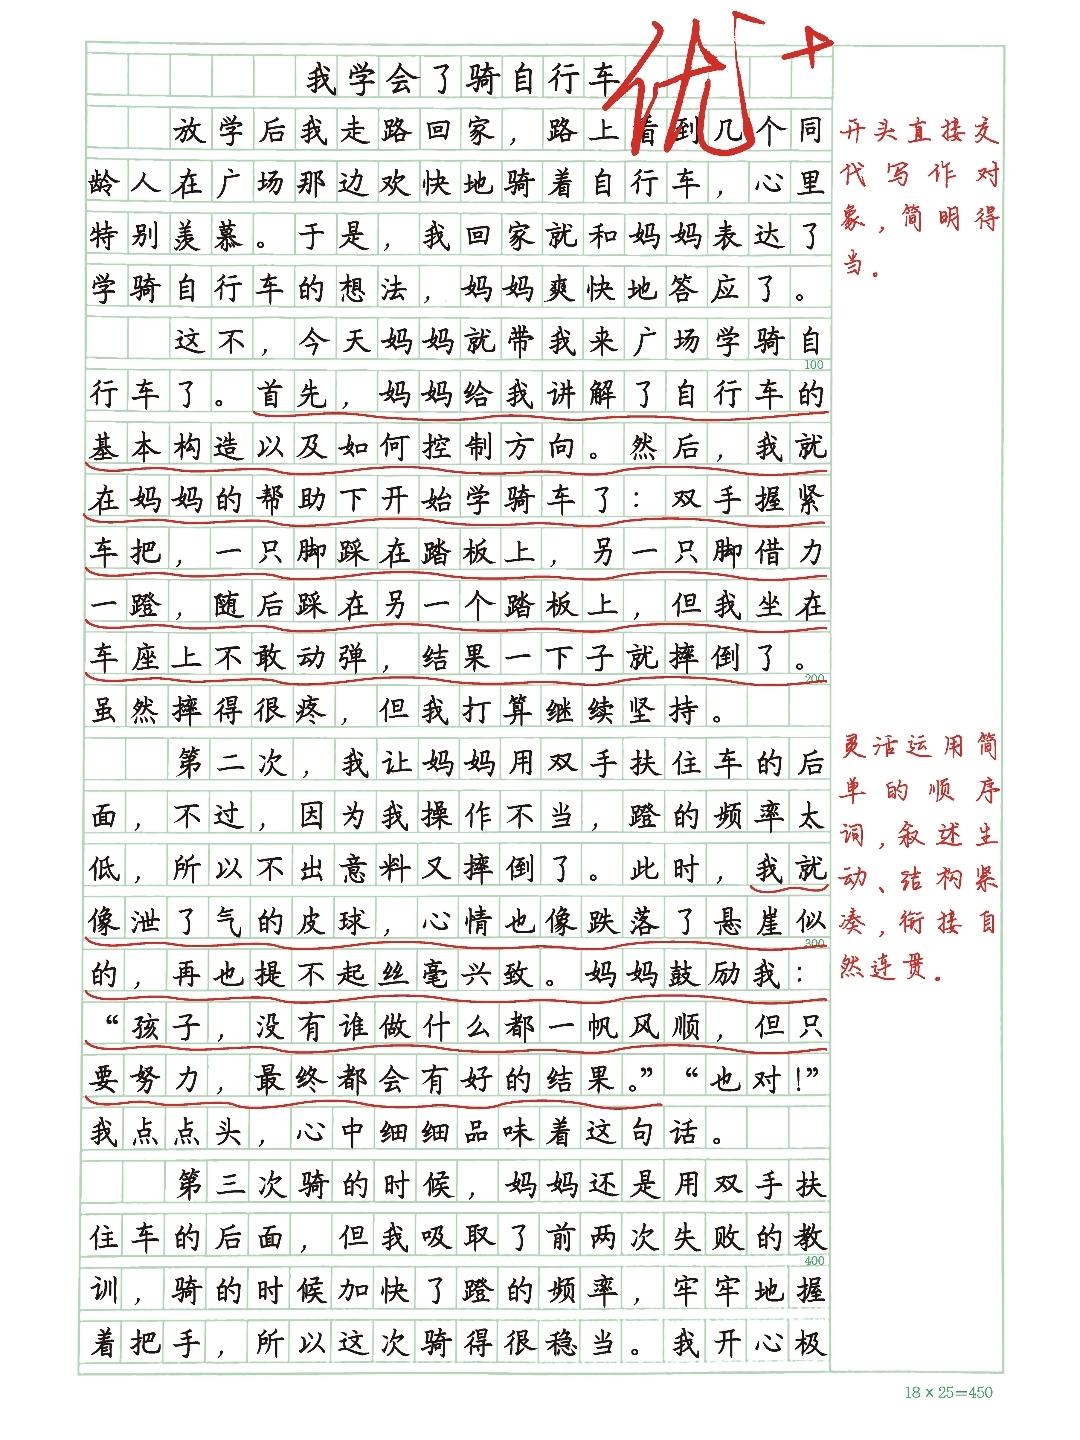 我学会了骑自行车
优+
放学后我走路回家，路上看到几个同
龄人在广场那边欢快地骑着自行车，心里
特别羡慕。于是，我回家就和妈妈表达了
学骑自行车的想法，妈妈爽快地答应了。
这不，今天妈妈就带我来广场学骑自
100
行车了。首先，妈妈给我讲解了自行车的
基本构造以及如何控制方向。然后，我就
在妈妈的帮助下开始学骑车了：双手握紧
车把，一只脚踩在踏板上，另一只脚借力
一蹬，随后踩在另一个踏板上，但我坐在
车座上不敢动弹，结果一下子就摔倒了。
200
虽然摔得很疼，但我打算继续坚持。
第二次，我让妈妈用双手扶住车的后
面，不过，因为我操作不当，蹬的频率太
低，所以不出意料又摔倒了。此时，我就
像泄了气的皮球，心情也像跌落了悬崖似
300
的，再也提不起丝毫兴致。妈妈鼓励我：
“孩子，没有谁做什么都一帆风顺，但只
要努力，最终都会有好的结果。”“也对！”
我点点头，心中细细品味着这句话。
第三次骑的时候，妈妈还是用双手扶
住车的后面，但我吸取了前两次失败的教
400
训，骑的时候加快了蹬的频率，牢牢地握
着把手，所以这次骑得很稳当。我开心极
开头直接交
代写作对
象，简明得
当。
灵活运用简
单的顺序
词，叙述生
动、结构紧
凑，衔接自
然连贯。
18×25=450